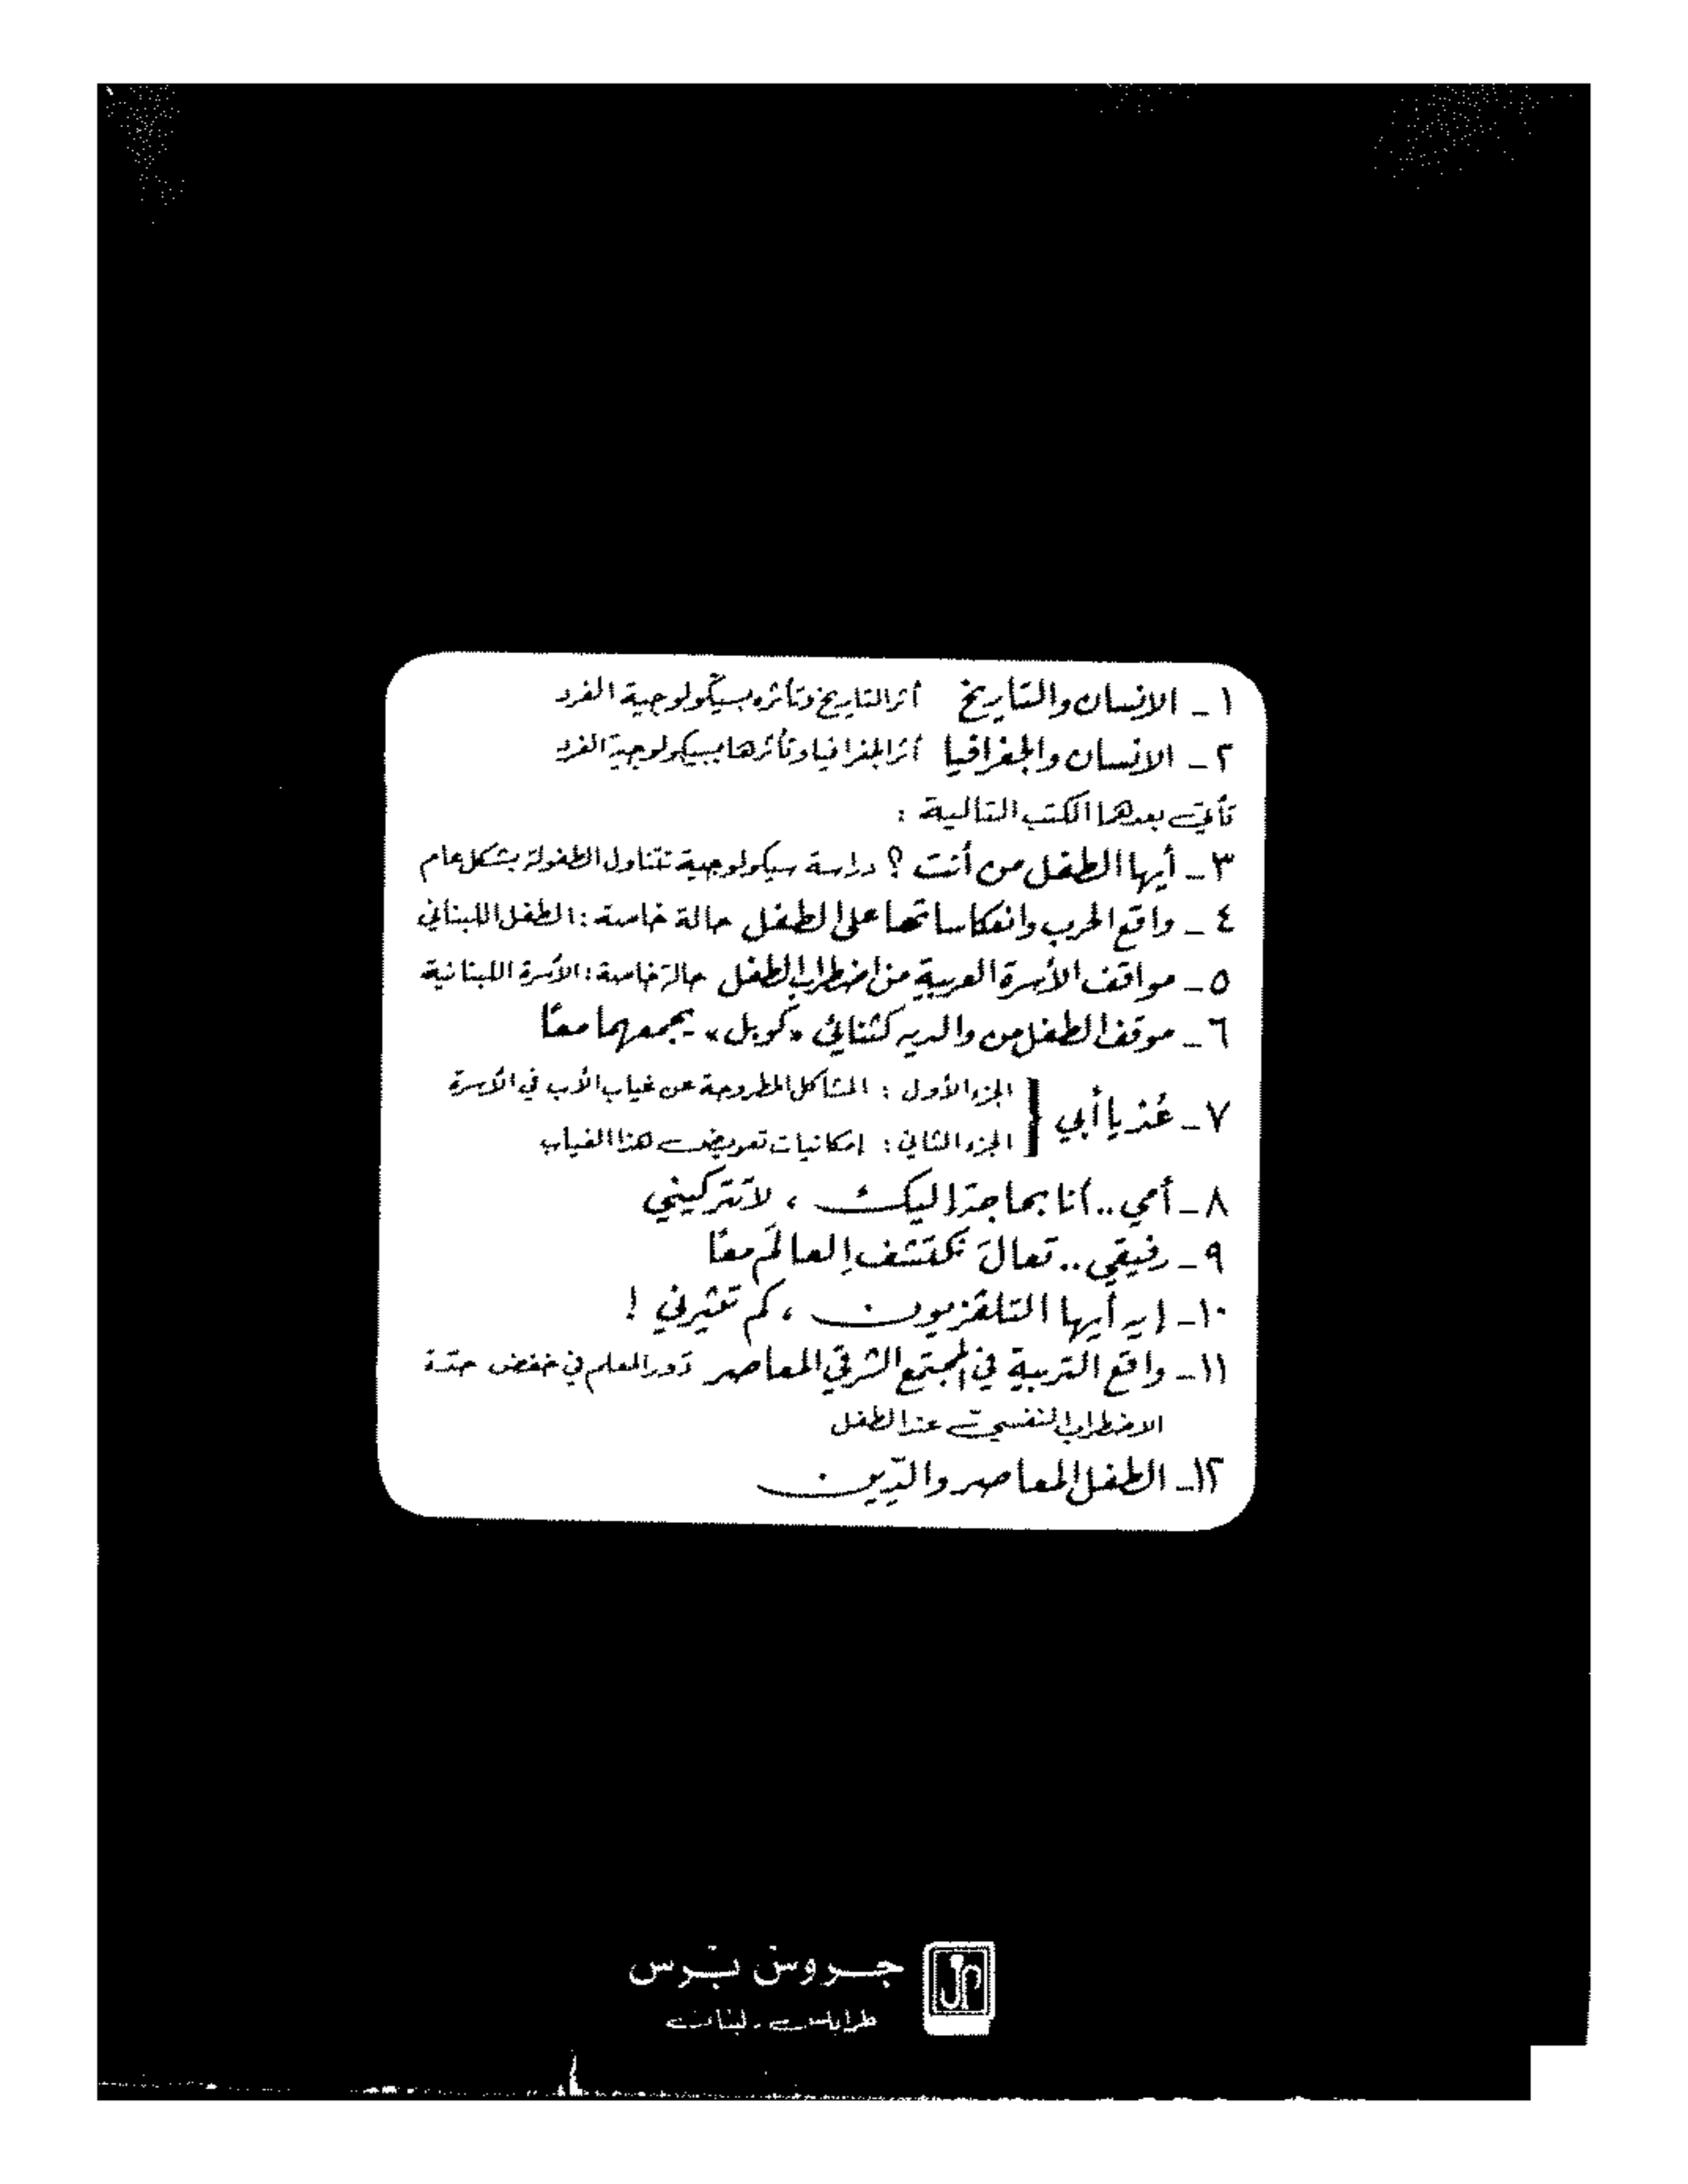 ١ - الانسان والتاريخ أثر التاريخ وتأثره بسيكولوجية الفرد
٢ - الانسان والجغرافيا أثر الجغرافيا وتأثرها بسيكولوجية الفرد
تأتي بعدهما الكتب التالية :
٣ - أيها الطفل من أنت ؟ دراسة سيكولوجية تتناول الطفولة بشكل عام
٤ - واقع الحرب وانعكاساتها على الطفل حالة خاصة : الطفل اللبناني
٥ - مواقف الأسرة العربية من اضطراب الطفل حالة خاصة : الأسرة اللبنانية
٦ - موقف الطفل من والديه كثنائي «كوبل» يجمعهما معًا
٧ - عُد يا أبي { الجزء الأول : المشاكل المطروحة عن غياب الأب في الأسرة
الجزء الثاني : إمكانيات تعويض هذا الغياب
٨ - أمي .. أنا بحاجة إليك ، لا تتركيني
٩ - رفيقي .. تعالَ نكتشف العالَم معًا
١٠ - إيه أيها التلفزيون ، كم تثيرني !
١١ - واقع التربية في المجتمع الشرقي المعاصر دور المعلم في خفض حدة
الاضطراب النفسي عند الطفل
١٢ - الطفل المعاصر والدّين
جروس برس
طرابلس - لبنان